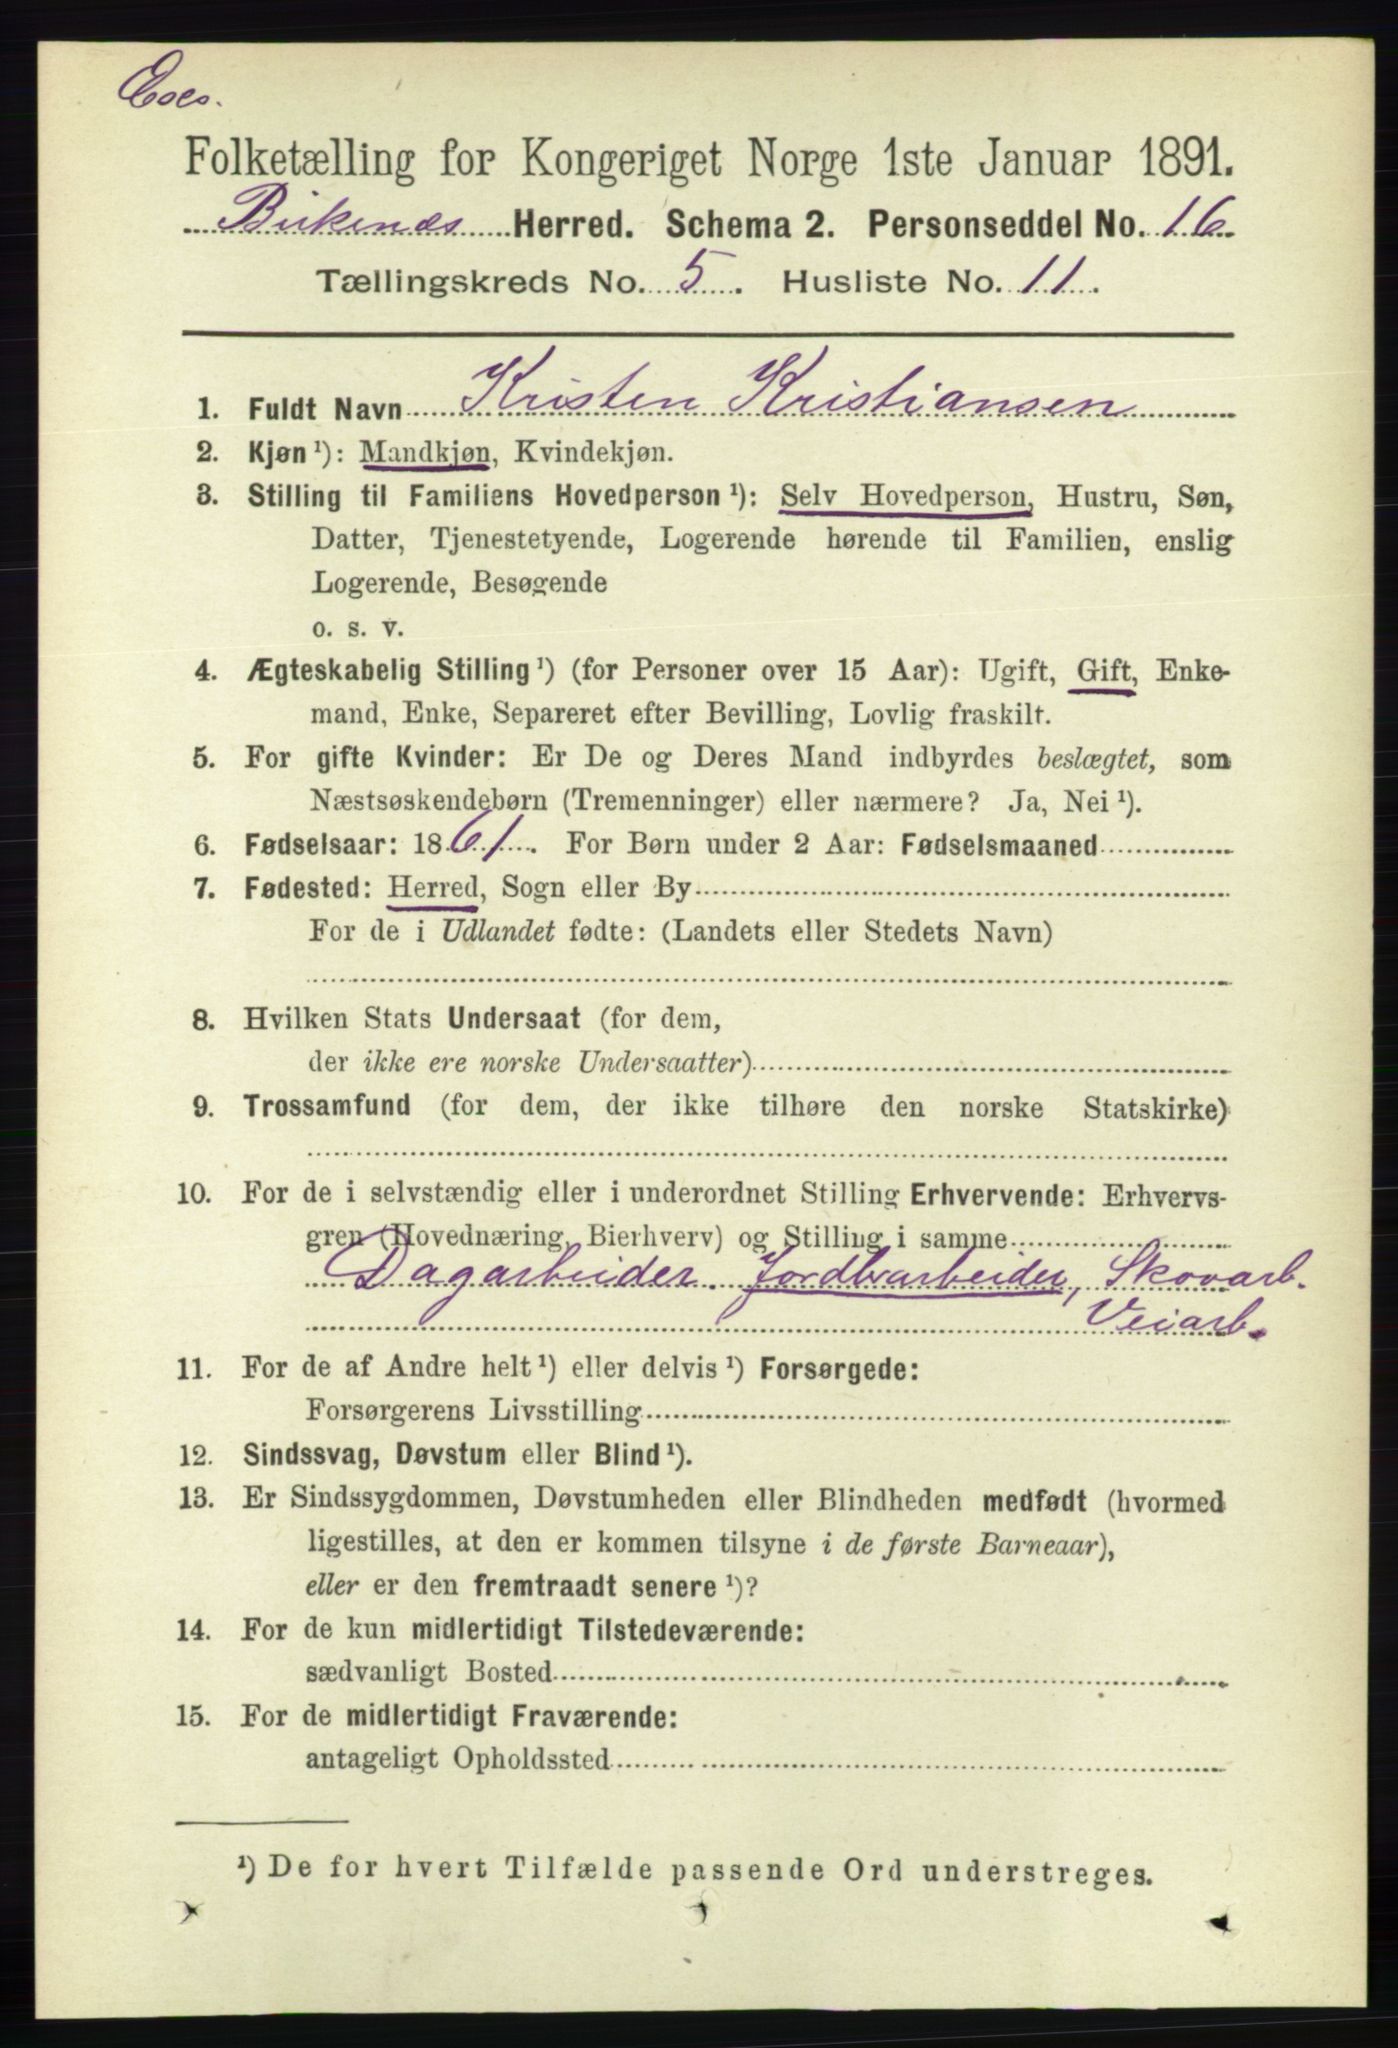 Folketælling for Kongeriget Norge 1ste Januar 1891.
Birkenæs Herred. Schema 2. Personseddel No. 16.
Tællingskreds No. 5. Husliste No. 11.
1. Fuldt Navn Kristen Kristiansen
2. Kjøn¹): Mandkjøn, Kvindekjøn.
3. Stilling til Familiens Hovedperson¹): Selv Hovedperson, Hustru, Søn,
Datter, Tjenestetyende, Logerende hørende til Familien, enslig
Logerende, Besøgende
o. s. v.
4. Ægteskabelig Stilling¹) (for Personer over 15 Aar): Ugift, Gift, Enke-
mand, Enke, Separeret efter Bevilling, Lovlig fraskilt.
5. For gifte Kvinder: Er De og Deres Mand indbyrdes beslægtet, som
Næstsøskendebørn (Tremenninger) eller nærmere? Ja, Nei¹).
6. Fødselsaar: 1861. For Børn under 2 Aar: Fødselsmaaned
7. Fødested: Herred, Sogn eller By
For de i Udlandet fødte: (Landets eller Stedets Navn)
8. Hvilken Stats Undersaat (for dem,
der ikke ere norske Undersaatter)
9. Trossamfund (for dem, der ikke tilhøre den norske Statskirke)
10. For de i selvstændig eller i underordnet Stilling Erhvervende: Erhvervs-
gren (Hovednæring, Bierhverv) og Stilling i samme
Dagarbeider. Jordbrarbeider, Skovarb.
Veiarb.
11. For de af Andre helt¹) eller delvis¹) Forsørgede:
Forsørgerens Livsstilling
12. Sindssvag, Døvstum eller Blind¹).
13. Er Sindssygdommen, Døvstumheden eller Blindheden medfødt (hvormed
ligestilles, at den er kommen tilsyne i de første Barneaar),
eller er den fremtraadt senere¹)?
14. For de kun midlertidigt Tilstedeværende:
sædvanligt Bosted
15. For de midlertidigt Fraværende:
antageligt Opholdssted
¹) De for hvert Tilfælde passende Ord understreges.